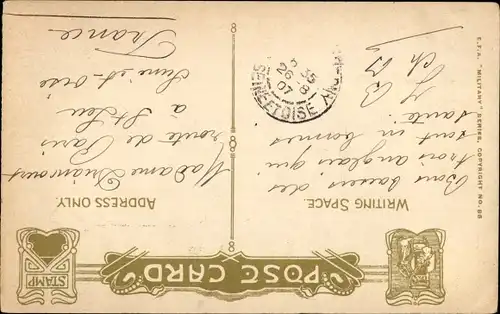 POST CARD
STAMP
WRITING SPACE.
ADDRESS ONLY.
Bons baisers des
trois anglais qui
sont en bonnes
santé.
Madame
route de Paris
à St Leu
Seine et-oise
France
SEINE-ET-OISE
26 8
07
E.F.A. "MILITARY" SERIES, COPYRIGHT NO. 86